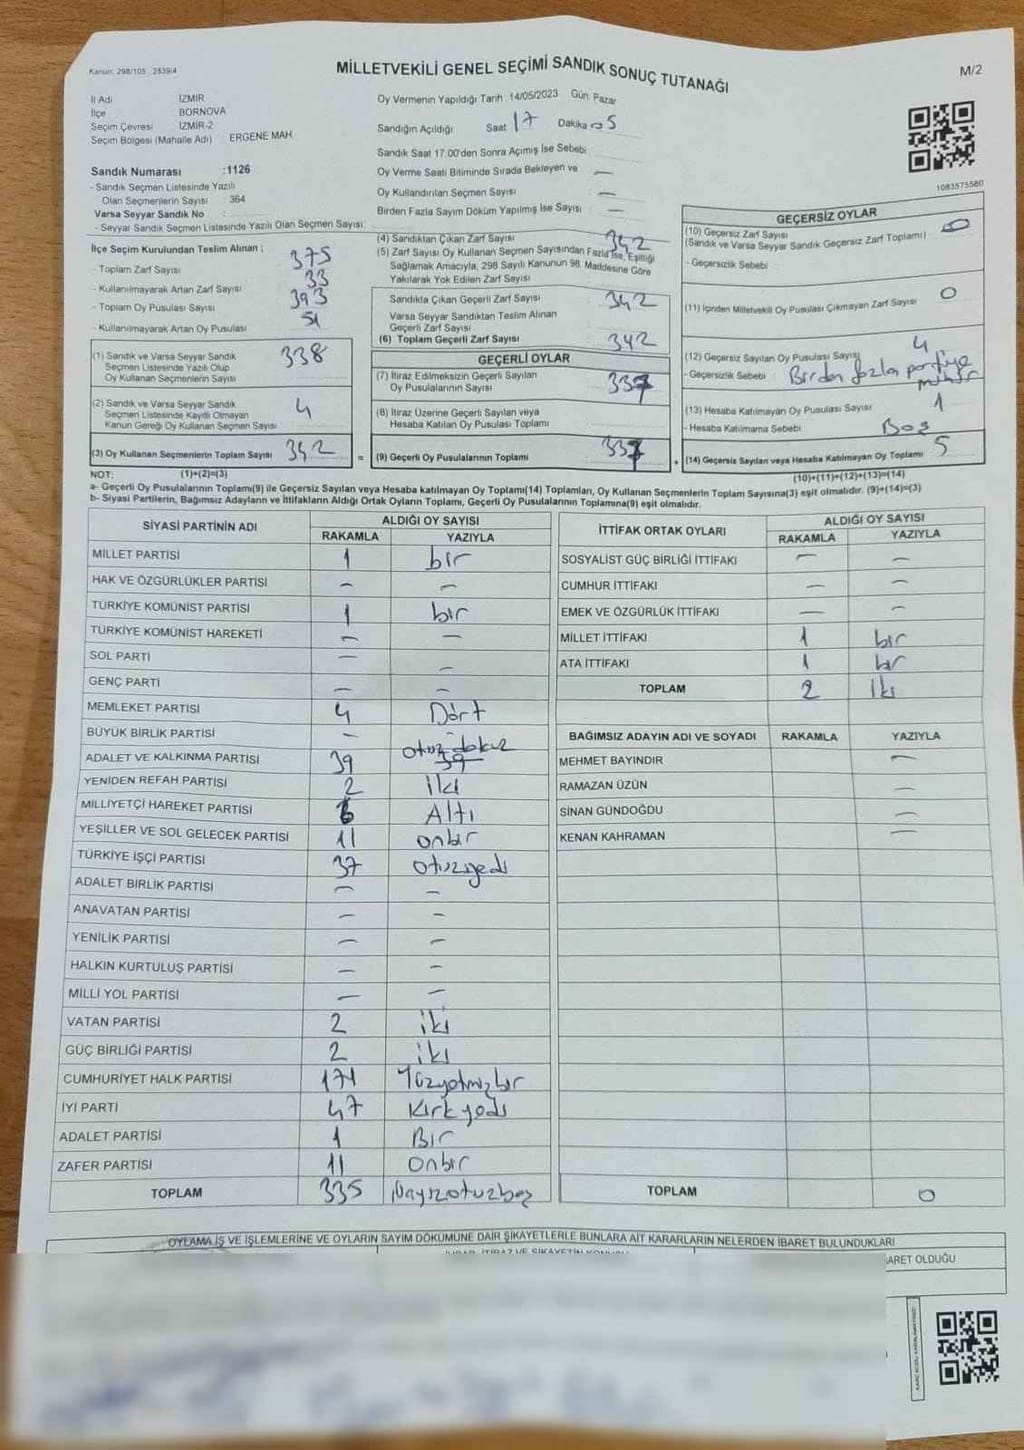 Kanun: 298/105 , 2839/4
MİLLETVEKİLİ GENEL SEÇİMİ SANDIK SONUÇ TUTANAĞI
M/2
İl Adı İZMİR
İlçe BORNOVA
Seçim Çevresi İZMİR-2
Seçim Bölgesi (Mahalle Adı) ERGENE MAH
Oy Vermenin Yapıldığı Tarih 14/05/2023 Gün: Pazar
Sandığın Açıldığı Saat 17 Dakika 05
Sandık Saat 17:00'den Sonra Açımış İse Sebebi
Oy Verme Saati Bitiminde Sırada Bekleyen ve —
Oy Kullandırılan Seçmen Sayısı —
Birden Fazla Sayım Döküm Yapılmış İse Sayısı —
1083575580
Sandık Numarası :1126
- Sandık Seçmen Listesinde Yazılı
Olan Seçmenlerin Sayısı : 364
Varsa Seyyar Sandık No :
- Seyyar Sandık Seçmen Listesinde Yazılı Olan Seçmen Sayısı:
İlçe Seçim Kurulundan Teslim Alınan ;
- Toplam Zarf Sayısı 375
- Kullanılmayarak Artan Zarf Sayısı 33
- Toplam Oy Pusulası Sayısı 393
- Kullanılmayarak Artan Oy Pusulası 51
(1) Sandık ve Varsa Seyyar Sandık
Seçmen Listesinde Yazılı Olup
Oy Kullanan Seçmenlerin Sayısı 338
(2) Sandık ve Varsa Seyyar Sandık
Seçmen Listesinde Kayıtlı Olmayan
Kanun Gereği Oy Kullanan Seçmen Sayısı 4
(3) Oy Kullanan Seçmenlerin Toplam Sayısı 342
(4) Sandıktan Çıkan Zarf Sayısı 342
(5) Zarf Sayısı Oy Kullanan Seçmen Sayısından Fazla İse, Eşitliği
Sağlamak Amacıyla, 298 Sayılı Kanunun 98. Maddesine Göre
Yakılarak Yok Edilen Zarf Sayısı
Sandıkta Çıkan Geçerli Zarf Sayısı 342
Varsa Seyyar Sandıktan Teslim Alınan
Geçerli Zarf Sayısı
(6) Toplam Geçerli Zarf Sayısı 342
GEÇERLİ OYLAR
(7) İtiraz Edilmeksizin Geçerli Sayılan
Oy Pusulalarının Sayısı 337
(8) İtiraz Üzerine Geçerli Sayılan veya
Hesaba Katılan Oy Pusulası Toplamı
= (9) Geçerli Oy Pusulalarının Toplamı 337
GEÇERSİZ OYLAR
(10) Geçersiz Zarf Sayısı 0
(Sandık ve Varsa Seyyar Sandık Geçersiz Zarf Toplamı)
- Geçersizlik Sebebi
(11) İçinden Milletvekili Oy Pusulası Çıkmayan Zarf Sayısı 0
(12) Geçersiz Sayılan Oy Pusulası Sayısı 4
- Geçersizlik Sebebi : Birden fazla partiye
mühür
(13) Hesaba Katılmayan Oy Pusulası Sayısı 1
- Hesaba Katılmama Sebebi Boş
+ (14) Geçersiz Sayılan veya Hesaba Katılmayan Oy Toplamı 5
NOT: (1)+(2)=(3) (10)+(11)+(12)+(13)=(14)
a- Geçerli Oy Pusulalarının Toplamı(9) ile Geçersiz Sayılan veya Hesaba katılmayan Oy Toplamı(14) Toplamları, Oy Kullanan Seçmenlerin Toplam Sayısına(3) eşit olmalıdır. (9)+(14)=(3)
b- Siyasi Partilerin, Bağımsız Adayların ve İttifakların Aldığı Ortak Oyların Toplamı, Geçerli Oy Pusulalarının Toplamına(9) eşit olmalıdır.
SİYASİ PARTİNİN ADI ALDIĞI OY SAYISI
RAKAMLA YAZIYLA
MİLLET PARTİSİ 1 bir
HAK VE ÖZGÜRLÜKLER PARTİSİ — —
TÜRKİYE KOMÜNİST PARTİSİ 1 bir
TÜRKİYE KOMÜNİST HAREKETİ — —
SOL PARTİ — —
GENÇ PARTİ — —
MEMLEKET PARTİSİ 4 Dört
BÜYÜK BİRLİK PARTİSİ — —
ADALET VE KALKINMA PARTİSİ 39 otuz dokuz 39
YENİDEN REFAH PARTİSİ 2 iki
MİLLİYETÇİ HAREKET PARTİSİ 6 Altı
YEŞİLLER VE SOL GELECEK PARTİSİ 11 onbir
TÜRKİYE İŞÇİ PARTİSİ 37 otuzyedi
ADALET BİRLİK PARTİSİ — —
ANAVATAN PARTİSİ — —
YENİLİK PARTİSİ — —
HALKIN KURTULUŞ PARTİSİ — —
MİLLİ YOL PARTİSİ — —
VATAN PARTİSİ 2 iki
GÜÇ BİRLİĞİ PARTİSİ 2 iki
CUMHURİYET HALK PARTİSİ 171 Yüzyetmişbir
İYİ PARTİ 47 Kırkyedi
ADALET PARTİSİ 1 Bir
ZAFER PARTİSİ 11 Onbir
TOPLAM 335 üçyüzotuzbeş
İTTİFAK ORTAK OYLARI ALDIĞI OY SAYISI
RAKAMLA YAZIYLA
SOSYALİST GÜÇ BİRLİĞİ İTTİFAKI — —
CUMHUR İTTİFAKI — —
EMEK VE ÖZGÜRLÜK İTTİFAKI — —
MİLLET İTTİFAKI 1 bir
ATA İTTİFAKI 1 bir
TOPLAM 2 İki
BAĞIMSIZ ADAYIN ADI VE SOYADI RAKAMLA YAZIYLA
MEHMET BAYINDIR —
RAMAZAN ÜZÜN —
SİNAN GÜNDOĞDU —
KENAN KAHRAMAN —
TOPLAM 0
OYLAMA İŞ VE İŞLEMLERİNE VE OYLARIN SAYIM DÖKÜMÜNE DAİR ŞİKAYETLERLE BUNLARA AİT KARARLARIN NELERDEN İBARET BULUNDUKLARI
BARET OLDUĞU